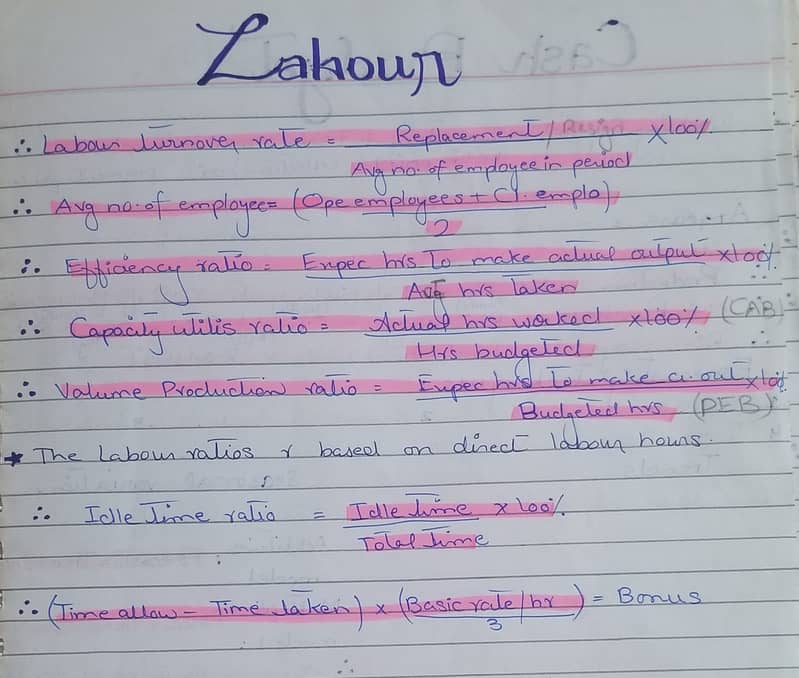 Labour
∴ Labour turnover rate = Replacement / Resign x100%
Avg no. of employee in period
∴ Avg no. of employee = (Ope employees + Cl. emplo)
2
∴ Efficiency ratio = Expec hrs to make actual output x100%
Avg hrs taken
∴ Capacity utilis ratio = Actual hrs worked x100% (CAB)
Hrs budgeted
∴ Volume Production ratio = Expec hrs to make a. out x100%
Budgeted hrs (PEB)
* The labour ratios r based on direct labour hours.
∴ Idle time ratio = Idle time x100%
Total time
∴ (Time allow - Time taken) x (Basic rate / hr) = Bonus
3